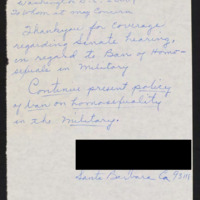 Washington D.C. 
To Whom it may Concern
Thankyou for coverage
regarding Senate hearing,
in regard to Ban of Homo-
sexuals in Military
Continue present policy
of ban on homosexuality
in the Military.
Santa Barbara Ca